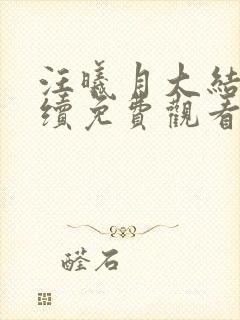 汪曦月大結
續免費觀看
醛石